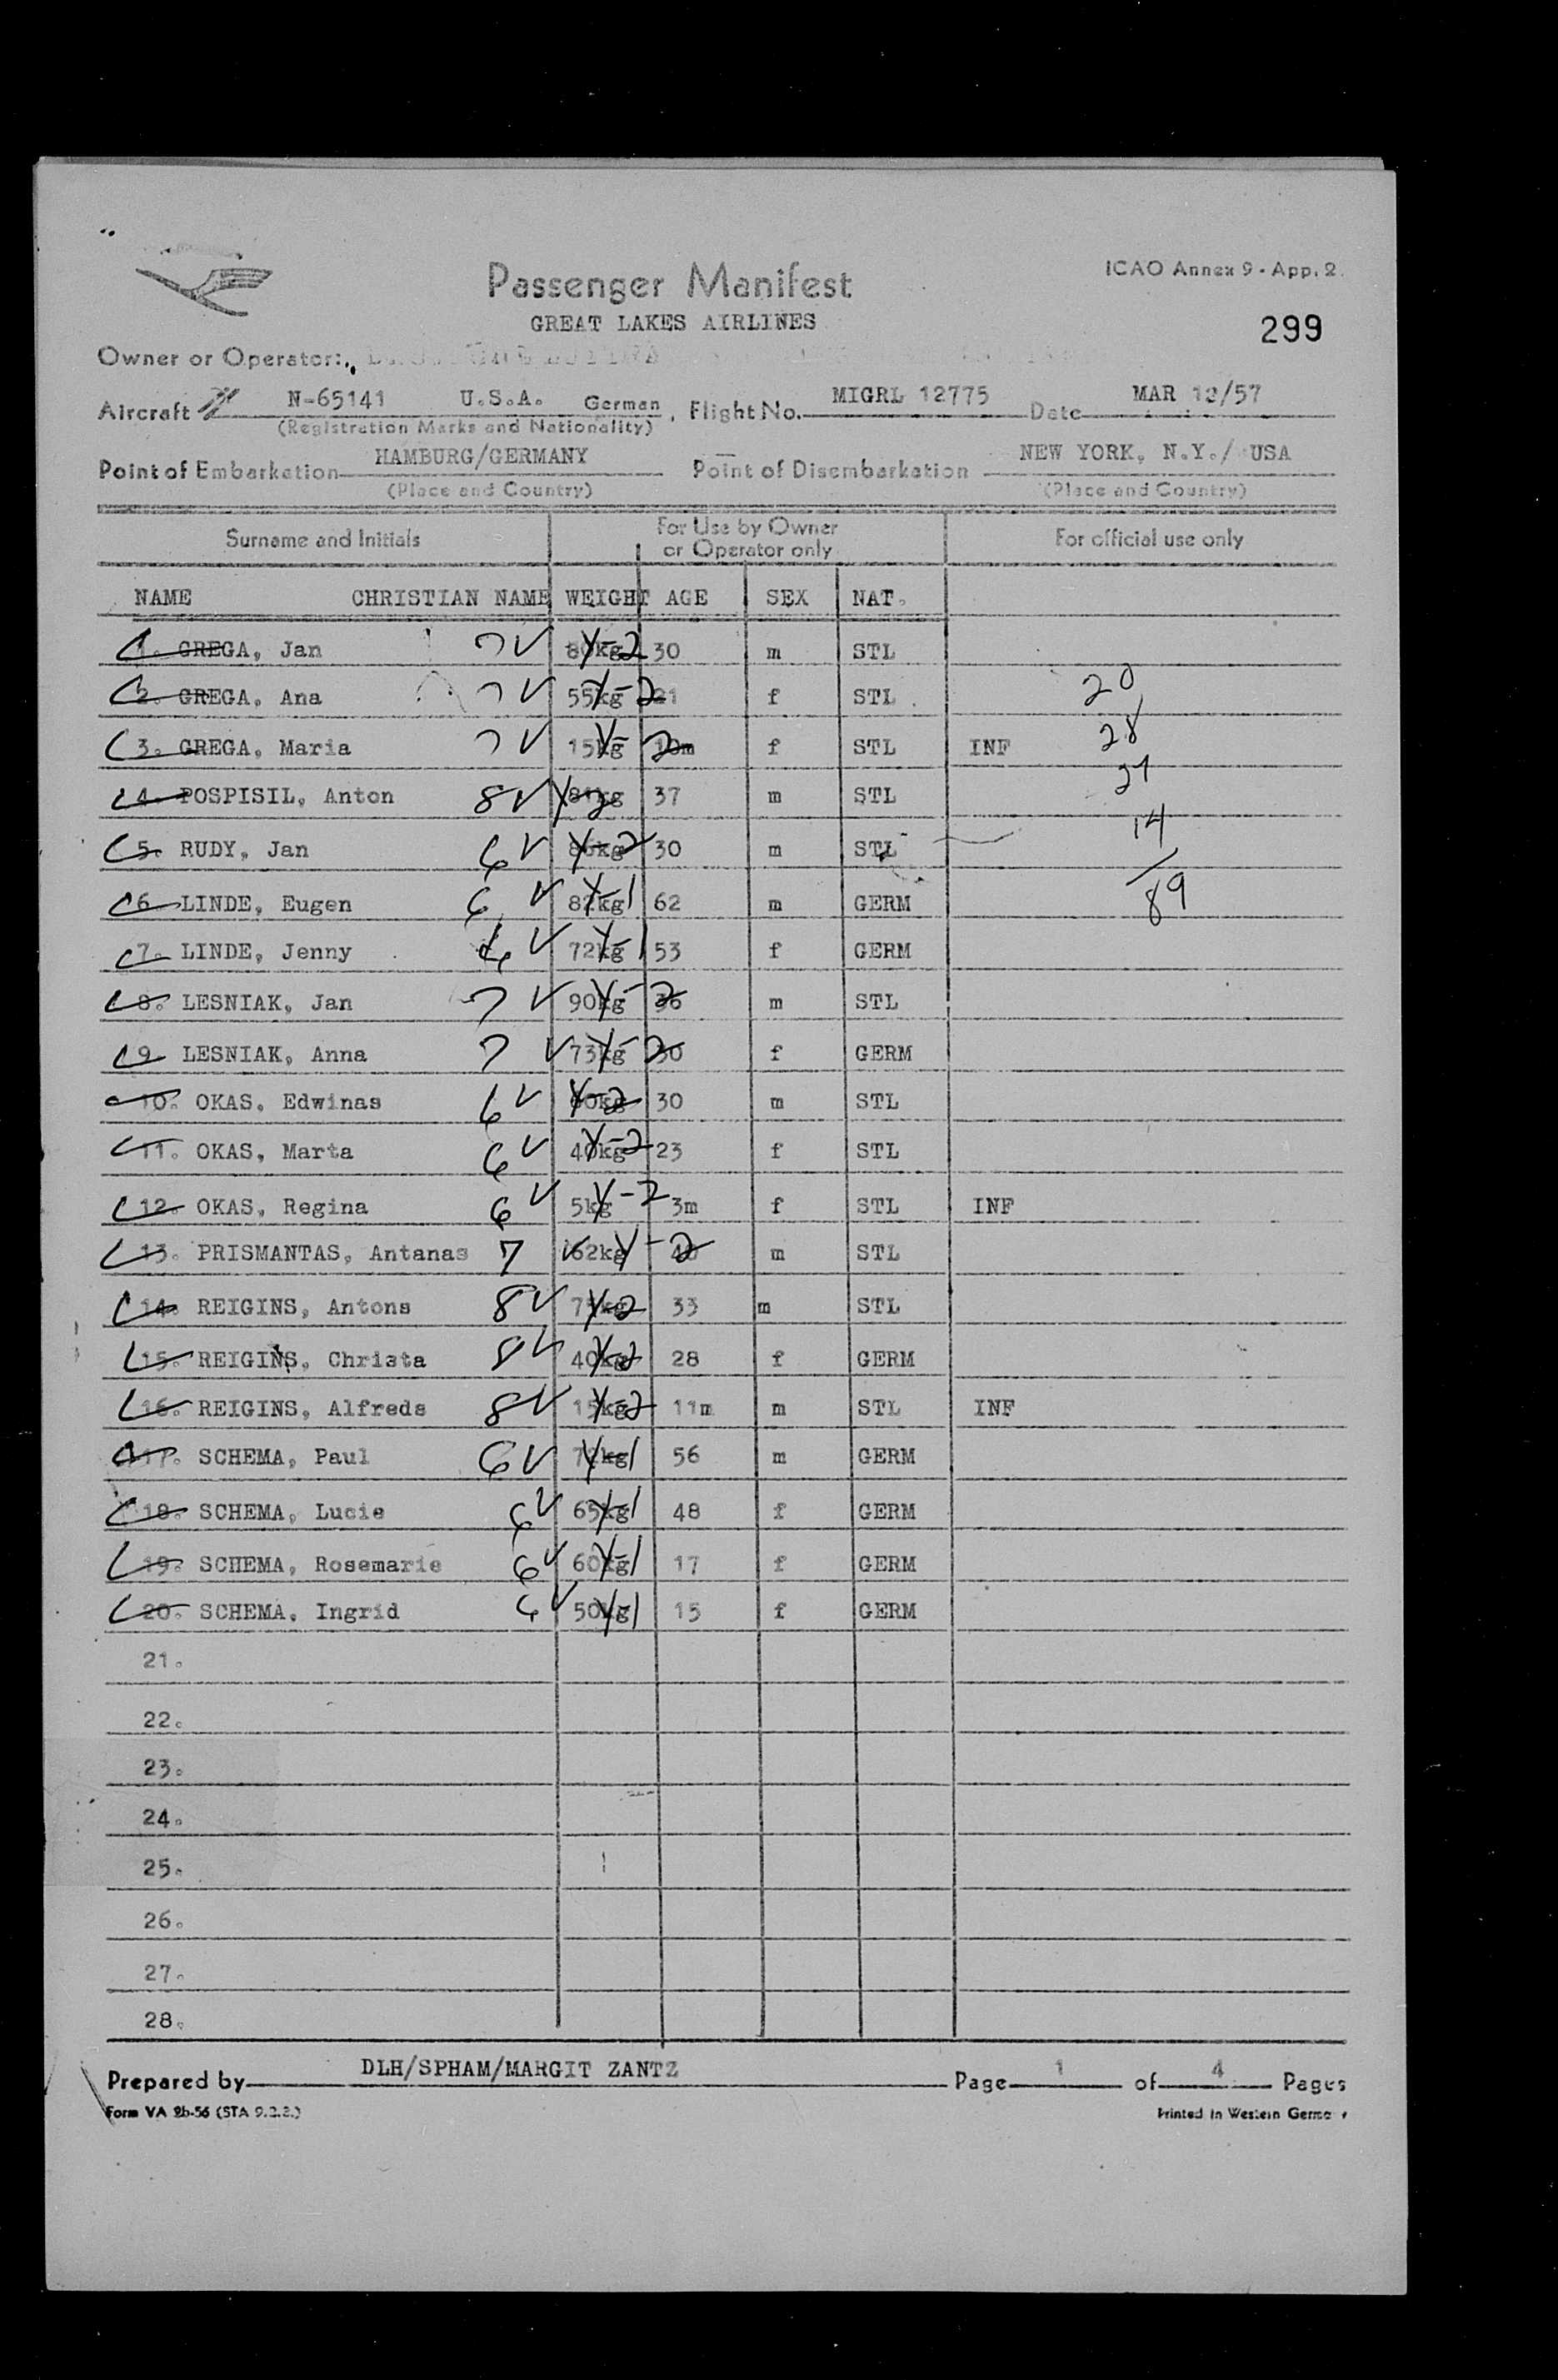 Passenger Manifest
ICAO Annex 9 - App. 2.
GREAT LAKES AIRLINES
299
Owner or Operator:
Aircraft N-65141 U.S.A. German, Flight No. MIGRL 12775 Date MAR 12/57
(Registration Marks and Nationality)
Point of Embarkation HAMBURG/GERMANY Point of Disembarkation NEW YORK, N.Y./ USA
(Place and Country) (Place and Country)
Surname and Initials For Use by Owner or Operator only For official use only
NAME CHRISTIAN NAME WEIGHT AGE SEX NAT.
1. GREGA, Jan 7 V 80kg Y-2 30 m STL
2. GREGA, Ana 7 V 55kg Y-2 21 f STL 20
3. GREGA, Maria 7 V 15kg Y-2 10m f STL INF 28
4. POSPISIL, Anton 8 V 81kg Y-2 37 m STL 27
5. RUDY, Jan 6 V 86kg Y-2 30 m STL 14
6. LINDE, Eugen 6 V 82kg Y-1 62 m GERM 89
7. LINDE, Jenny 6 V 72kg Y-1 53 f GERM
8. LESNIAK, Jan 7 V 90kg Y-2 36 m STL
9. LESNIAK, Anna 7 V 73kg Y-2 30 f GERM
10. OKAS, Edwinas 6 V 60kg Y-2 30 m STL
11. OKAS, Marta 6 V 40kg Y-2 23 f STL
12. OKAS, Regina 6 V 5kg Y-2 3m f STL INF
13. PRISMANTAS, Antanas 7 V 62kg Y-2 m STL
14. REIGINS, Antons 8 V Y-2 33 m STL
15. REIGINS, Christa 8 V 40kg Y-2 28 f GERM
16. REIGINS, Alfreds 8 V 15kg Y-2 11m m STL INF
17. SCHEMA, Paul 6 V 72kg Y-1 56 m GERM
18. SCHEMA, Lucie 6 V 65kg Y-1 48 f GERM
19. SCHEMA, Rosemarie 6 V 60kg Y-1 17 f GERM
20. SCHEMA, Ingrid 6 V 50kg Y-1 15 f GERM
21.
22.
23.
24.
25.
26.
27.
28.
Prepared by DLH/SPHAM/MARGIT ZANTZ Page 1 of 4 Pages
Form VA 2b-56 (STA 9.2.2.) Printed in Western